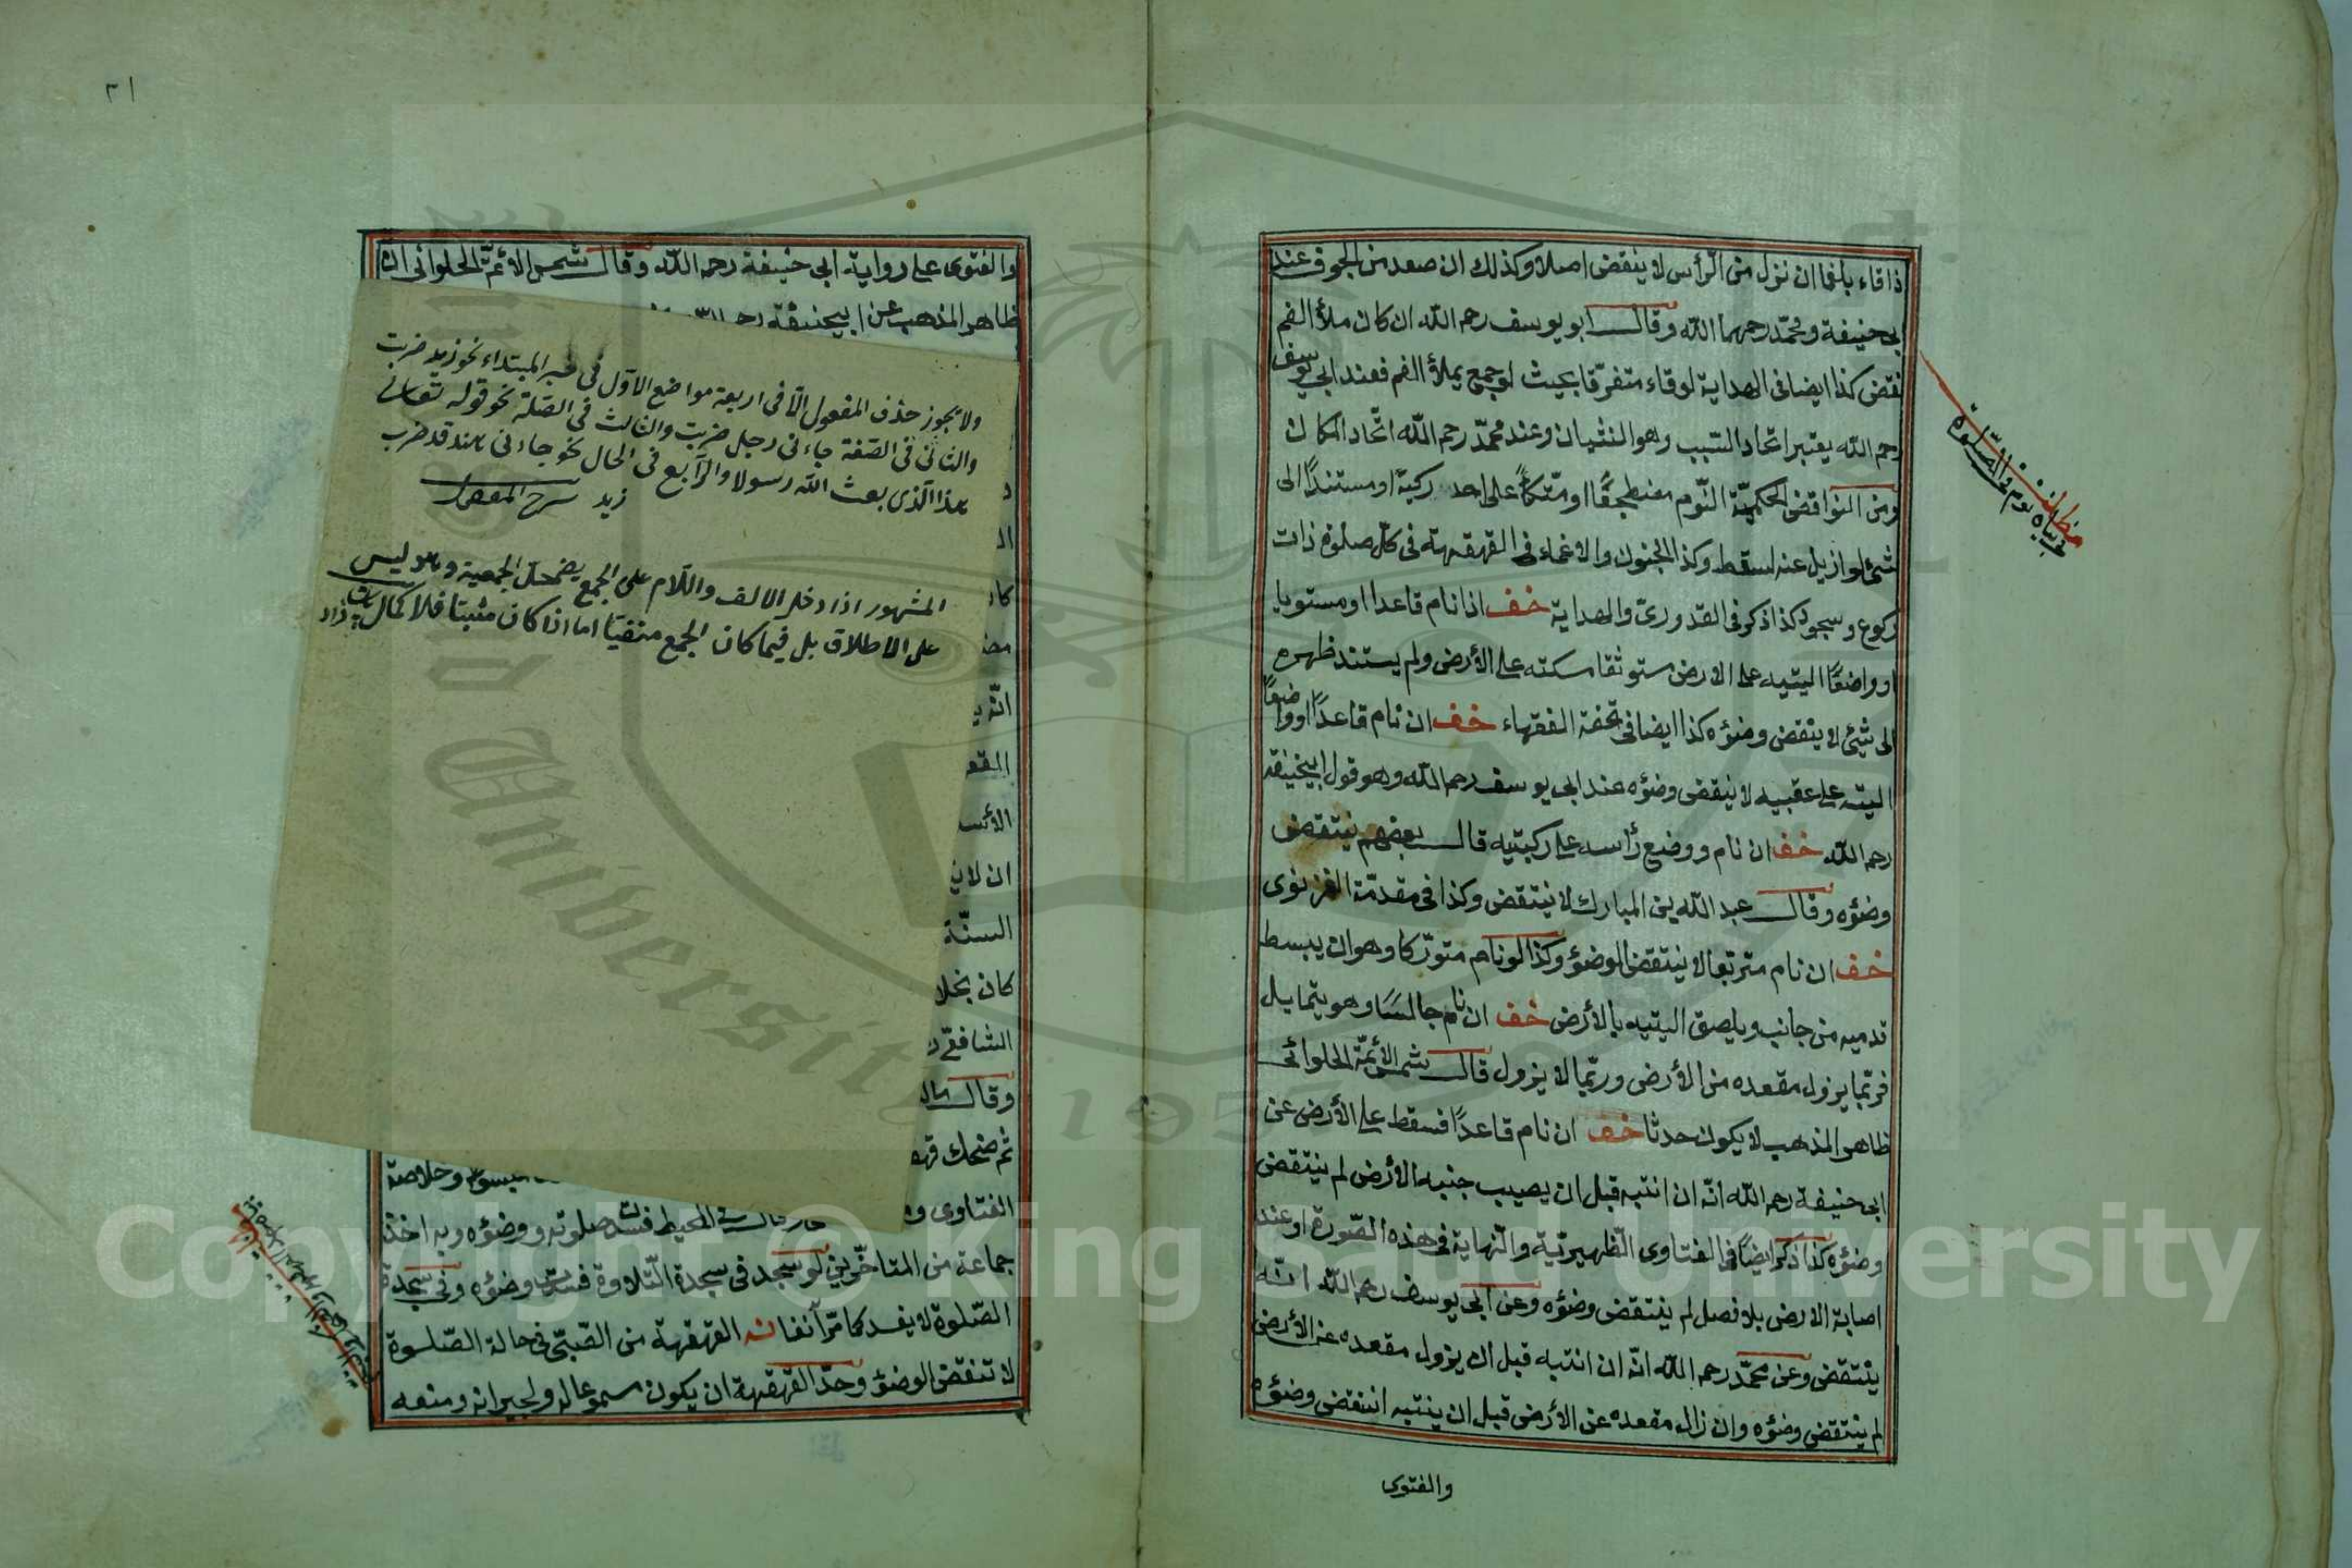 ذا قاء بلغما ان نزل من الرأس لا ينقض اصلا وكذلك ان صعد من الجوف عند
ابى حنيفة ومحمّد رحمهما الله وقال ابو يوسف رحمه الله ان كان ملأ الفم
نقض كذا ايضا فى الهداية لو قاء متفرّقا بحيث لو جمع يملأ الفم فعند ابى يوسف
رحمه الله يعتبر اتحاد السّبب وهو الغثيان وعند محمّد رحمه الله اتّحاد المكان
ومن النواقض الحكميّة النّوم مضطجعًا او متّكأً على احد ركبتيه او مستندًا الى
شئ لو ازيل عنه لسقط وكذا الجنون والاغماء فى القهقهة فى كل صلوة ذات
ركوع وسجود كذا ذكر فى القدورىّ والهداية خف اذا نام قاعدا او مستويا
او واضعًا اليتيه على الارض مستوثقا مسكته على الأرض ولم يستند ظهره
الى شئ لا ينتقض وضوءه كذا ايضا فى تحفة الفقهاء خف ان نام قاعدًا او واضعًا
اليته على عقبيه لا ينتقض وضوءه عند ابى يوسف رحمه الله وهو قول ابيحنيفة
رحمه الله خف ان نام ووضع رأسه على ركبتيه قال بعضهم ينتقض
وضوءه وقال عبد الله بن المبارك لا ينتقض وكذا فى مقدمّة الغزنوى
خف ان نام متربعا لا ينتقض الوضوء وكذا لو نام متورّكا وهو ان يبسط
قدميه من جانب ويلصق اليتيه بالأرض خف ان نام جالسًا وهو يتمايل
فربّما يزول مقعده من الأرض وربّما لا يزول قال شمس الأئمّة الحلوائى
ظاهر المذهب لا يكون حدثا خف ان نام قاعدًا فسقط على الأرض عن
ابى حنيفة رحمه الله انّه ان انتبه قبل ان يصيب جنبه الأرض لم ينتقض
وضوءه كذا ذكر ايضًا فى الفتاوى الظّهيريّة والنّهاية فى هذه الصّورة او عند
اصابة الارض بلا فصل لم ينتقض وضوءه وعن ابى يوسف رحمه الله انّه
ينتقض وعن محمّد رحمه الله انّه ان انتبه قبل ان يزول مقعده عن الأرض
لم ينتقض وضوءه وان زال مقعده عن الأرض قبل ان ينتبه انتقض وضوءه
والفتوى
٢١
والفتوى على رواية ابى حنيفة رحمه الله وقال شمس الائمّة الحلوانى انّ
ظاهر المذهب عن ابيحنيفة
ولا يجوز حذف المفعول الّا فى اربعة مواضع الاوّل فى خبر المبتداء نحو زيد ضربت
والثانى فى الصّفة جاءنى رجل ضربت والثالث فى الصّلة نحو قوله تعالى
هذا الّذى بعث الله رسولا والرّابع فى الحال نحو جاءنى هند قد ضرب
زيد شرح المفصّل
المشهور اذا دخل الالف واللّام على الجمع يضمحلّ الجمعية وهو ليس
على الاطلاق بل فيما كان الجمع منفيّا اما اذا كان مثبتا فلا
انّه
السنّة
كان بخلا
الشافعّى
وقال
ثم ضحك
المبسوط وخلاصة
الفتاوى
فى المحيط فسدت صلوته ووضوءه وبه اخذ
جماعة من المتأخّرين لو سجد فى سجدة التّلاوة فسدت وضوءه وفى سجدة
الصّلوة لا يفسد كما مرّ آنفا القهقهة من الصّبّى فى حالة الصّلوة
لا تنقض الوضوء وحدّ القهقهة ان يكون مسموعا له ولجيرانه ومنعه
Copyright © King Saud University